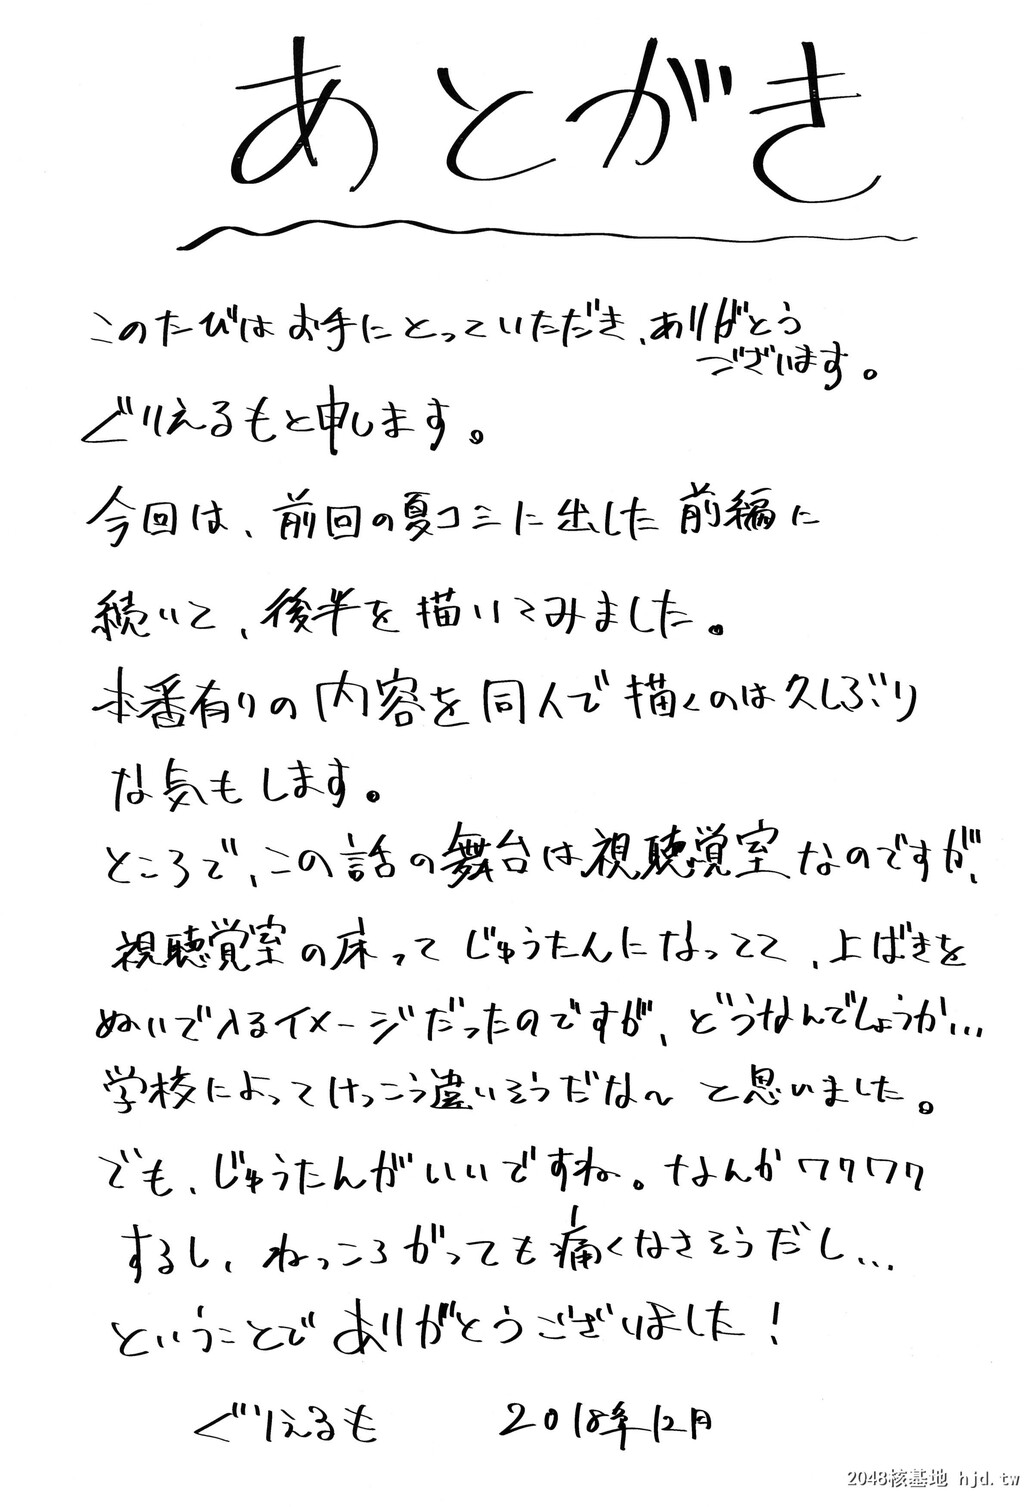 あとがき
このたびはお手にとっていただき、ありがとう
ございます。
ぐりえるもと申します。
今回は、前回の夏コミに出した前編に
続いて、後半を描いてみました。
本番有りの内容を同人で描くのは久しぶり
な気もします。
ところで、この話の舞台は視聴覚室なのですが、
視聴覚室の床ってじゅうたんになってて、上ばきを
ぬいで入るイメージだったのですが、どうなんでしょうか…
学校によってけっこう違いそうだな〜と思いました。
でも、じゅうたんがいいですね。なんかワクワク
するし、ねっころがっても痛くなさそうだし…
ということでありがとうございました!
ぐりえるも 2018年12月
2048核基地 hjd.tw